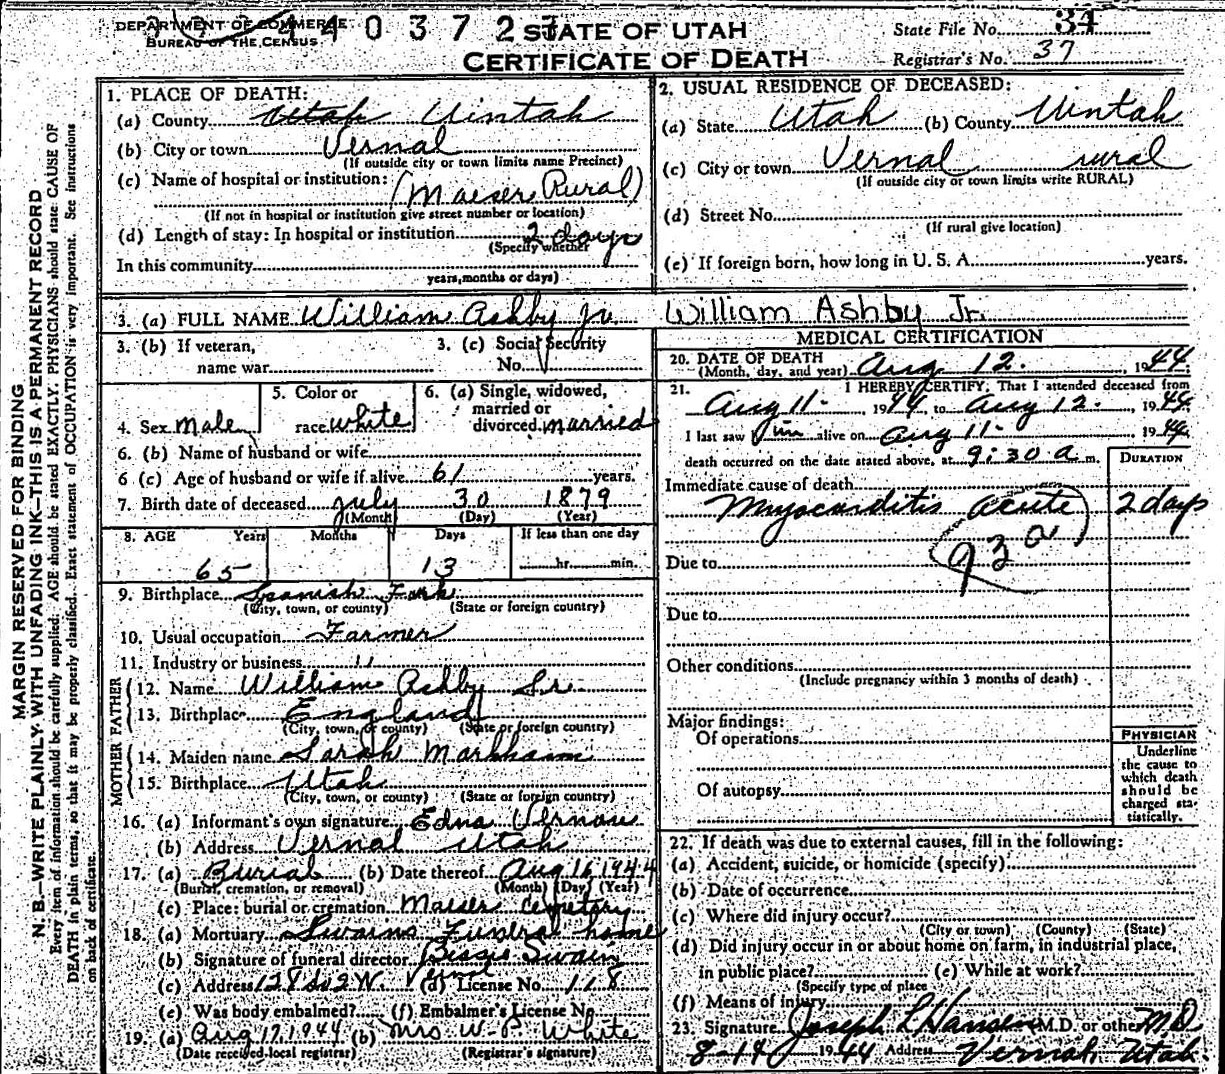 DEPARTMENT OF COMMERCE
BUREAU OF THE CENSUS
4 4 0 3 7 2
STATE OF UTAH
CERTIFICATE OF DEATH
State File No. 34
Registrar's No. 37
MARGIN RESERVED FOR BINDING
N. B.—WRITE PLAINLY, WITH UNFADING INK—THIS IS A PERMANENT RECORD
Every item of information should be carefully supplied. AGE should be stated EXACTLY. PHYSICIANS should state CAUSE OF
DEATH in plain terms, so that it may be properly classified. Exact statement of OCCUPATION is very important. See instructions
on back of certificate.
1. PLACE OF DEATH:
(a) County Utah Uintah
(b) City or town Vernal
(If outside city or town limits name Precinct)
(c) Name of hospital or institution:
(Maeser Rural)
(If not in hospital or institution give street number or location)
(d) Length of stay: In hospital or institution 2 days
(Specify whether
In this community
years, months or days)
2. USUAL RESIDENCE OF DECEASED:
(a) State Utah (b) County Uintah
(c) City or town Vernal rural
(If outside city or town limits write RURAL)
(d) Street No.
(If rural give location)
(e) If foreign born, how long in U. S. A. years.
3. (a) FULL NAME William Ashby Jr. William Ashby Jr.
3. (b) If veteran,
name war
3. (c) Social Security
No.
4. Sex male
5. Color or
race white
6. (a) Single, widowed,
married or
divorced married
6. (b) Name of husband or wife
6 (c) Age of husband or wife if alive 61 years.
7. Birth date of deceased July 30 1879
(Month) (Day) (Year)
8. AGE Years Months Days If less than one day
65 13 hr. min.
9. Birthplace Spanish Fork
(City, town, or county) (State or foreign country)
10. Usual occupation Farmer
11. Industry or business "
FATHER
12. Name William Ashby Sr.
13. Birthplace England
(City, town, or county) (State or foreign country)
MOTHER
14. Maiden name Sarah Markham
15. Birthplace Utah
(City, town, or county) (State or foreign country)
16. (a) Informant's own signature Edna Vernon
(b) Address Vernal Utah
17. (a) Burial (b) Date thereof Aug 16 1944
(Burial, cremation, or removal) (Month) (Day) (Year)
(c) Place: burial or cremation Maeser Cemetery
18. (a) Mortuary Swains Funeral home
(b) Signature of funeral director Bessie Swain
(c) Address 128 So 2 W. Vernal (d) License No. 118
(e) Was body embalmed? (f) Embalmer's License No.
19. (a) Aug 17, 1944 (b) Mrs W. P. White
(Date received local registrar) (Registrar's signature)
MEDICAL CERTIFICATION
20. DATE OF DEATH
(Month, day, and year) Aug 12. 1944
21. I HEREBY CERTIFY, That I attended deceased from
Aug 11. 1944 to Aug 12. 1944
I last saw him alive on Aug 11. 1944
death occurred on the date stated above, at 9:30 a m.
DURATION
Immediate cause of death
Myocarditis acute 2 days
93a
Due to
Due to
Other conditions
(Include pregnancy within 3 months of death)
Major findings:
Of operations
Of autopsy
PHYSICIAN
Underline
the cause to
which death
should be
charged sta-
tistically.
22. If death was due to external causes, fill in the following:
(a) Accident, suicide, or homicide (specify)
(b) Date of occurrence
(c) Where did injury occur?
(City or town) (County) (State)
(d) Did injury occur in or about home on farm, in industrial place,
in public place? (e) While at work?
(Specify type of place
(f) Means of injury
23. Signature Joseph L Hansen M.D. or other M D
8-14 1944 Address Vernal, Utah.